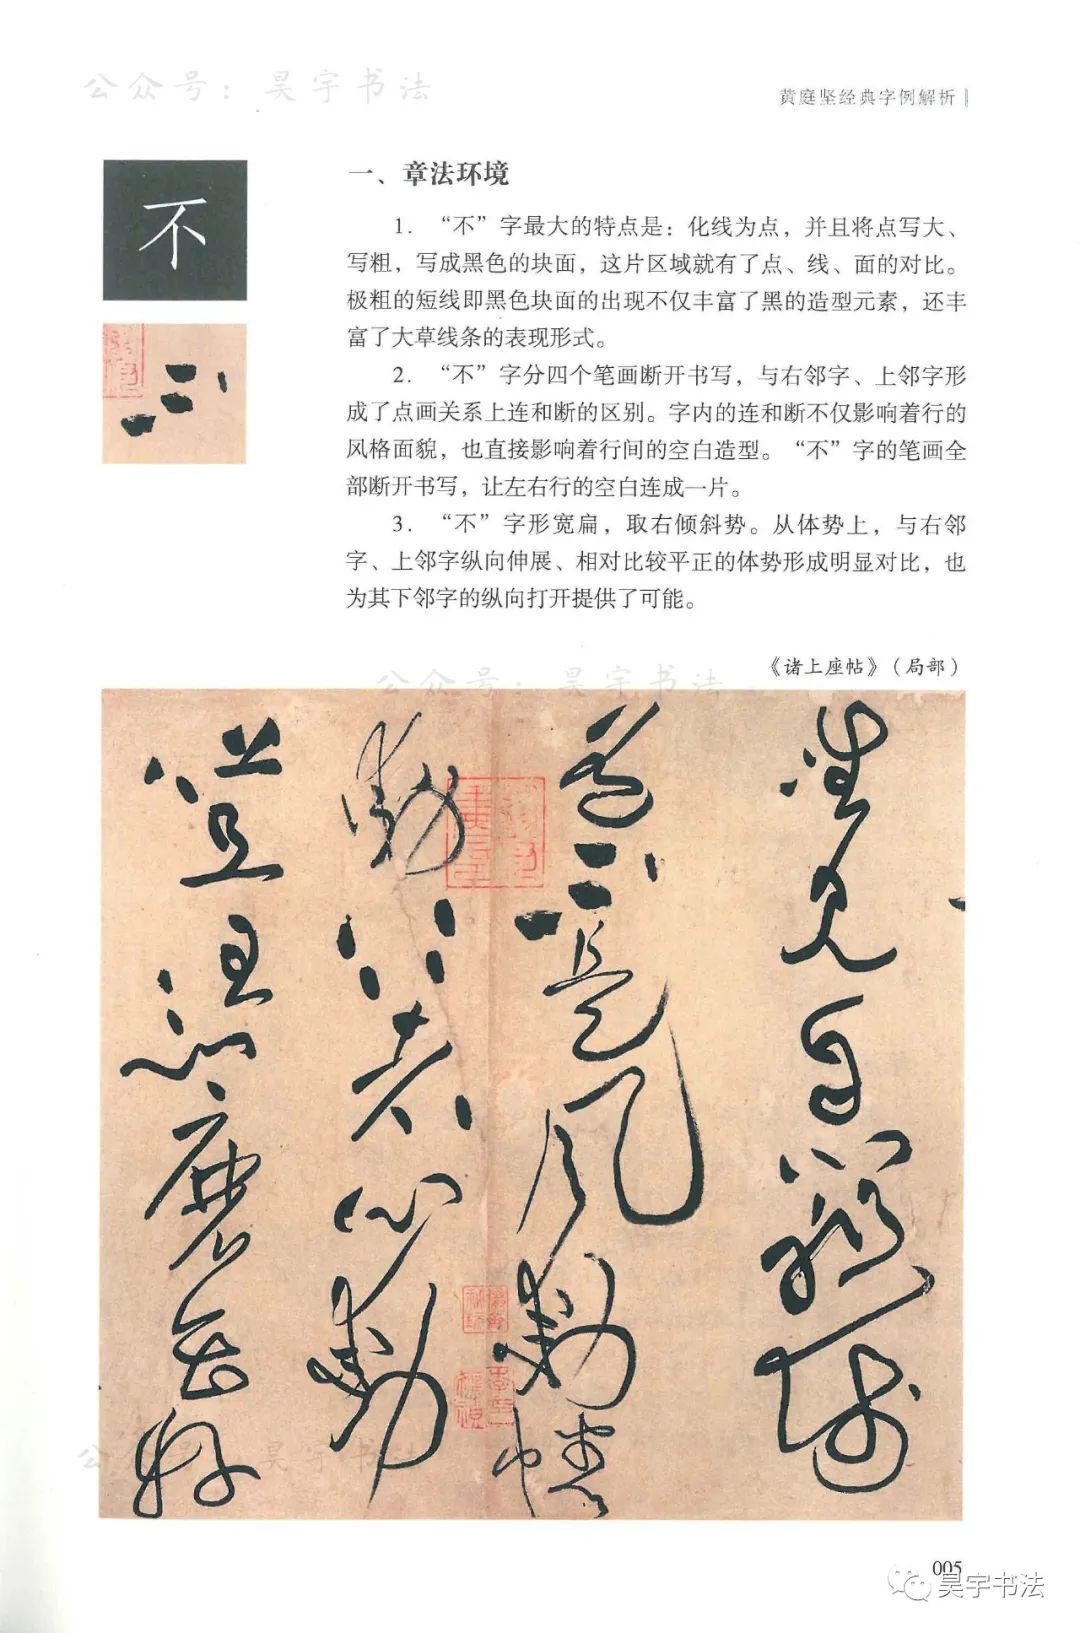 公众号：昊宇书法
黄庭坚经典字例解析
不
一、章法环境
1. “不”字最大的特点是：化线为点，并且将点写大、
写粗，写成黑色的块面，这片区域就有了点、线、面的对比。
极粗的短线即黑色块面的出现不仅丰富了黑的造型元素，还丰
富了大草线条的表现形式。
2. “不”字分四个笔画断开书写，与右邻字、上邻字形
成了点画关系上连和断的区别。字内的连和断不仅影响着行的
风格面貌，也直接影响着行间的空白造型。“不”字的笔画全
部断开书写，让左右行的空白连成一片。
3. “不”字形宽扁，取右倾斜势。从体势上，与右邻
字、上邻字纵向伸展、相对比较平正的体势形成明显对比，也
为其下邻字的纵向打开提供了可能。
不
《诸上座帖》（局部）
公众号：昊宇书法
道不是風動幡
動仁者心動
公众号：昊宇书法
005
昊宇书法